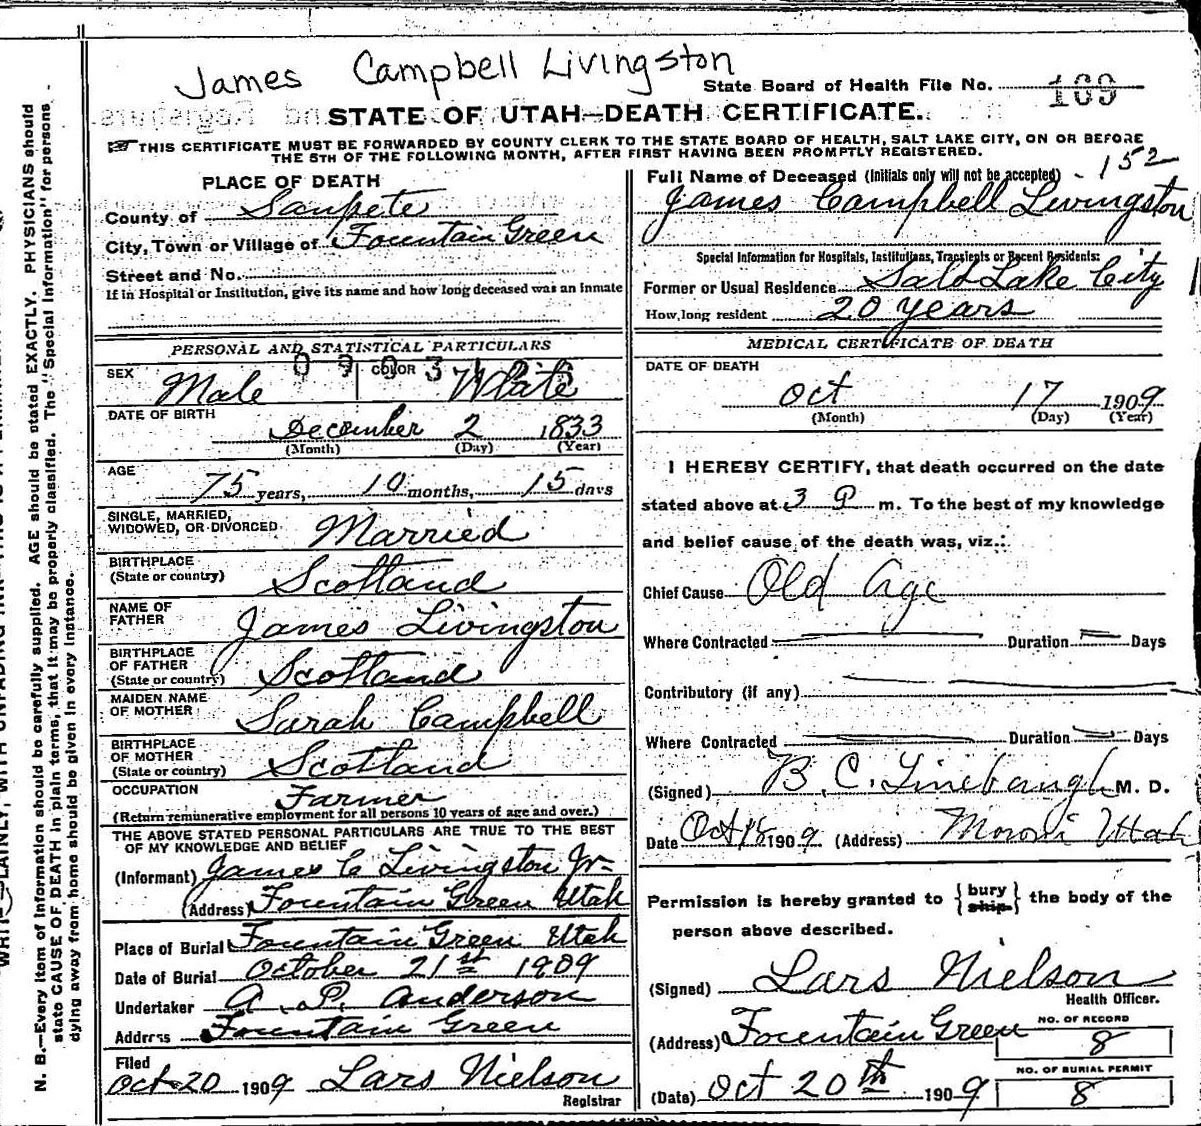 James Campbell Livingston
State Board of Health File No. 169
STATE OF UTAH—DEATH CERTIFICATE.
THIS CERTIFICATE MUST BE FORWARDED BY COUNTY CLERK TO THE STATE BOARD OF HEALTH, SALT LAKE CITY, ON OR BEFORE
THE 5TH OF THE FOLLOWING MONTH, AFTER FIRST HAVING BEEN PROMPTLY REGISTERED.
PLACE OF DEATH
County of Sanpete
City, Town or Village of Fountain Green
Street and No.
If in Hospital or Institution, give its name and how long deceased was an inmate
Full Name of Deceased (Initials only will not be accepted) - 152
James Campbell Livingston
Special Information for Hospitals, Institutions, Transients or Recent Residents:
Former or Usual Residence Salt Lake City
How long resident 20 years
PERSONAL AND STATISTICAL PARTICULARS
SEX Male
COLOR White
DATE OF BIRTH
December 2 1833
(Month) (Day) (Year)
AGE
75 years, 10 months, 15 days
SINGLE, MARRIED,
WIDOWED, OR DIVORCED Married
BIRTHPLACE
(State or country) Scotland
NAME OF
FATHER James Livingston
BIRTHPLACE
OF FATHER
(State or country) Scotland
MAIDEN NAME
OF MOTHER Sarah Campbell
BIRTHPLACE
OF MOTHER
(State or country) Scotland
OCCUPATION Farmer
(Return remunerative employment for all persons 10 years of age and over.)
THE ABOVE STATED PERSONAL PARTICULARS ARE TRUE TO THE BEST
OF MY KNOWLEDGE AND BELIEF
(Informant) James C Livingston Jr
(Address) Fountain Green Utah
Place of Burial Fountain Green Utah
Date of Burial October 21st 1909
Undertaker A. P. Anderson
Address Fountain Green
Filed
Oct 20 1909 Lars Nielson
Registrar
MEDICAL CERTIFICATE OF DEATH
DATE OF DEATH
Oct 17 1909
(Month) (Day) (Year)
I HEREBY CERTIFY, that death occurred on the date
stated above at 3 P m. To the best of my knowledge
and belief cause of the death was, viz.:
Chief Cause Old Age
Where Contracted Duration Days
Contributory (if any)
Where Contracted Duration Days
(Signed) B. C. Linebaugh M. D.
Date Oct 18 1909. (Address) Moroni Utah
Permission is hereby granted to {bury ship} the body of the
person above described.
(Signed) Lars Nielson
Health Officer.
(Address) Fountain Green
NO. OF RECORD
8
(Date) Oct 20th 1909
NO. OF BURIAL PERMIT
8
N. B.—Every item of information should be carefully supplied. AGE should be stated EXACTLY. PHYSICIANS should
state CAUSE OF DEATH in plain terms, that it may be properly classified. The "Special Information" for persons
dying away from home should be given in every instance.